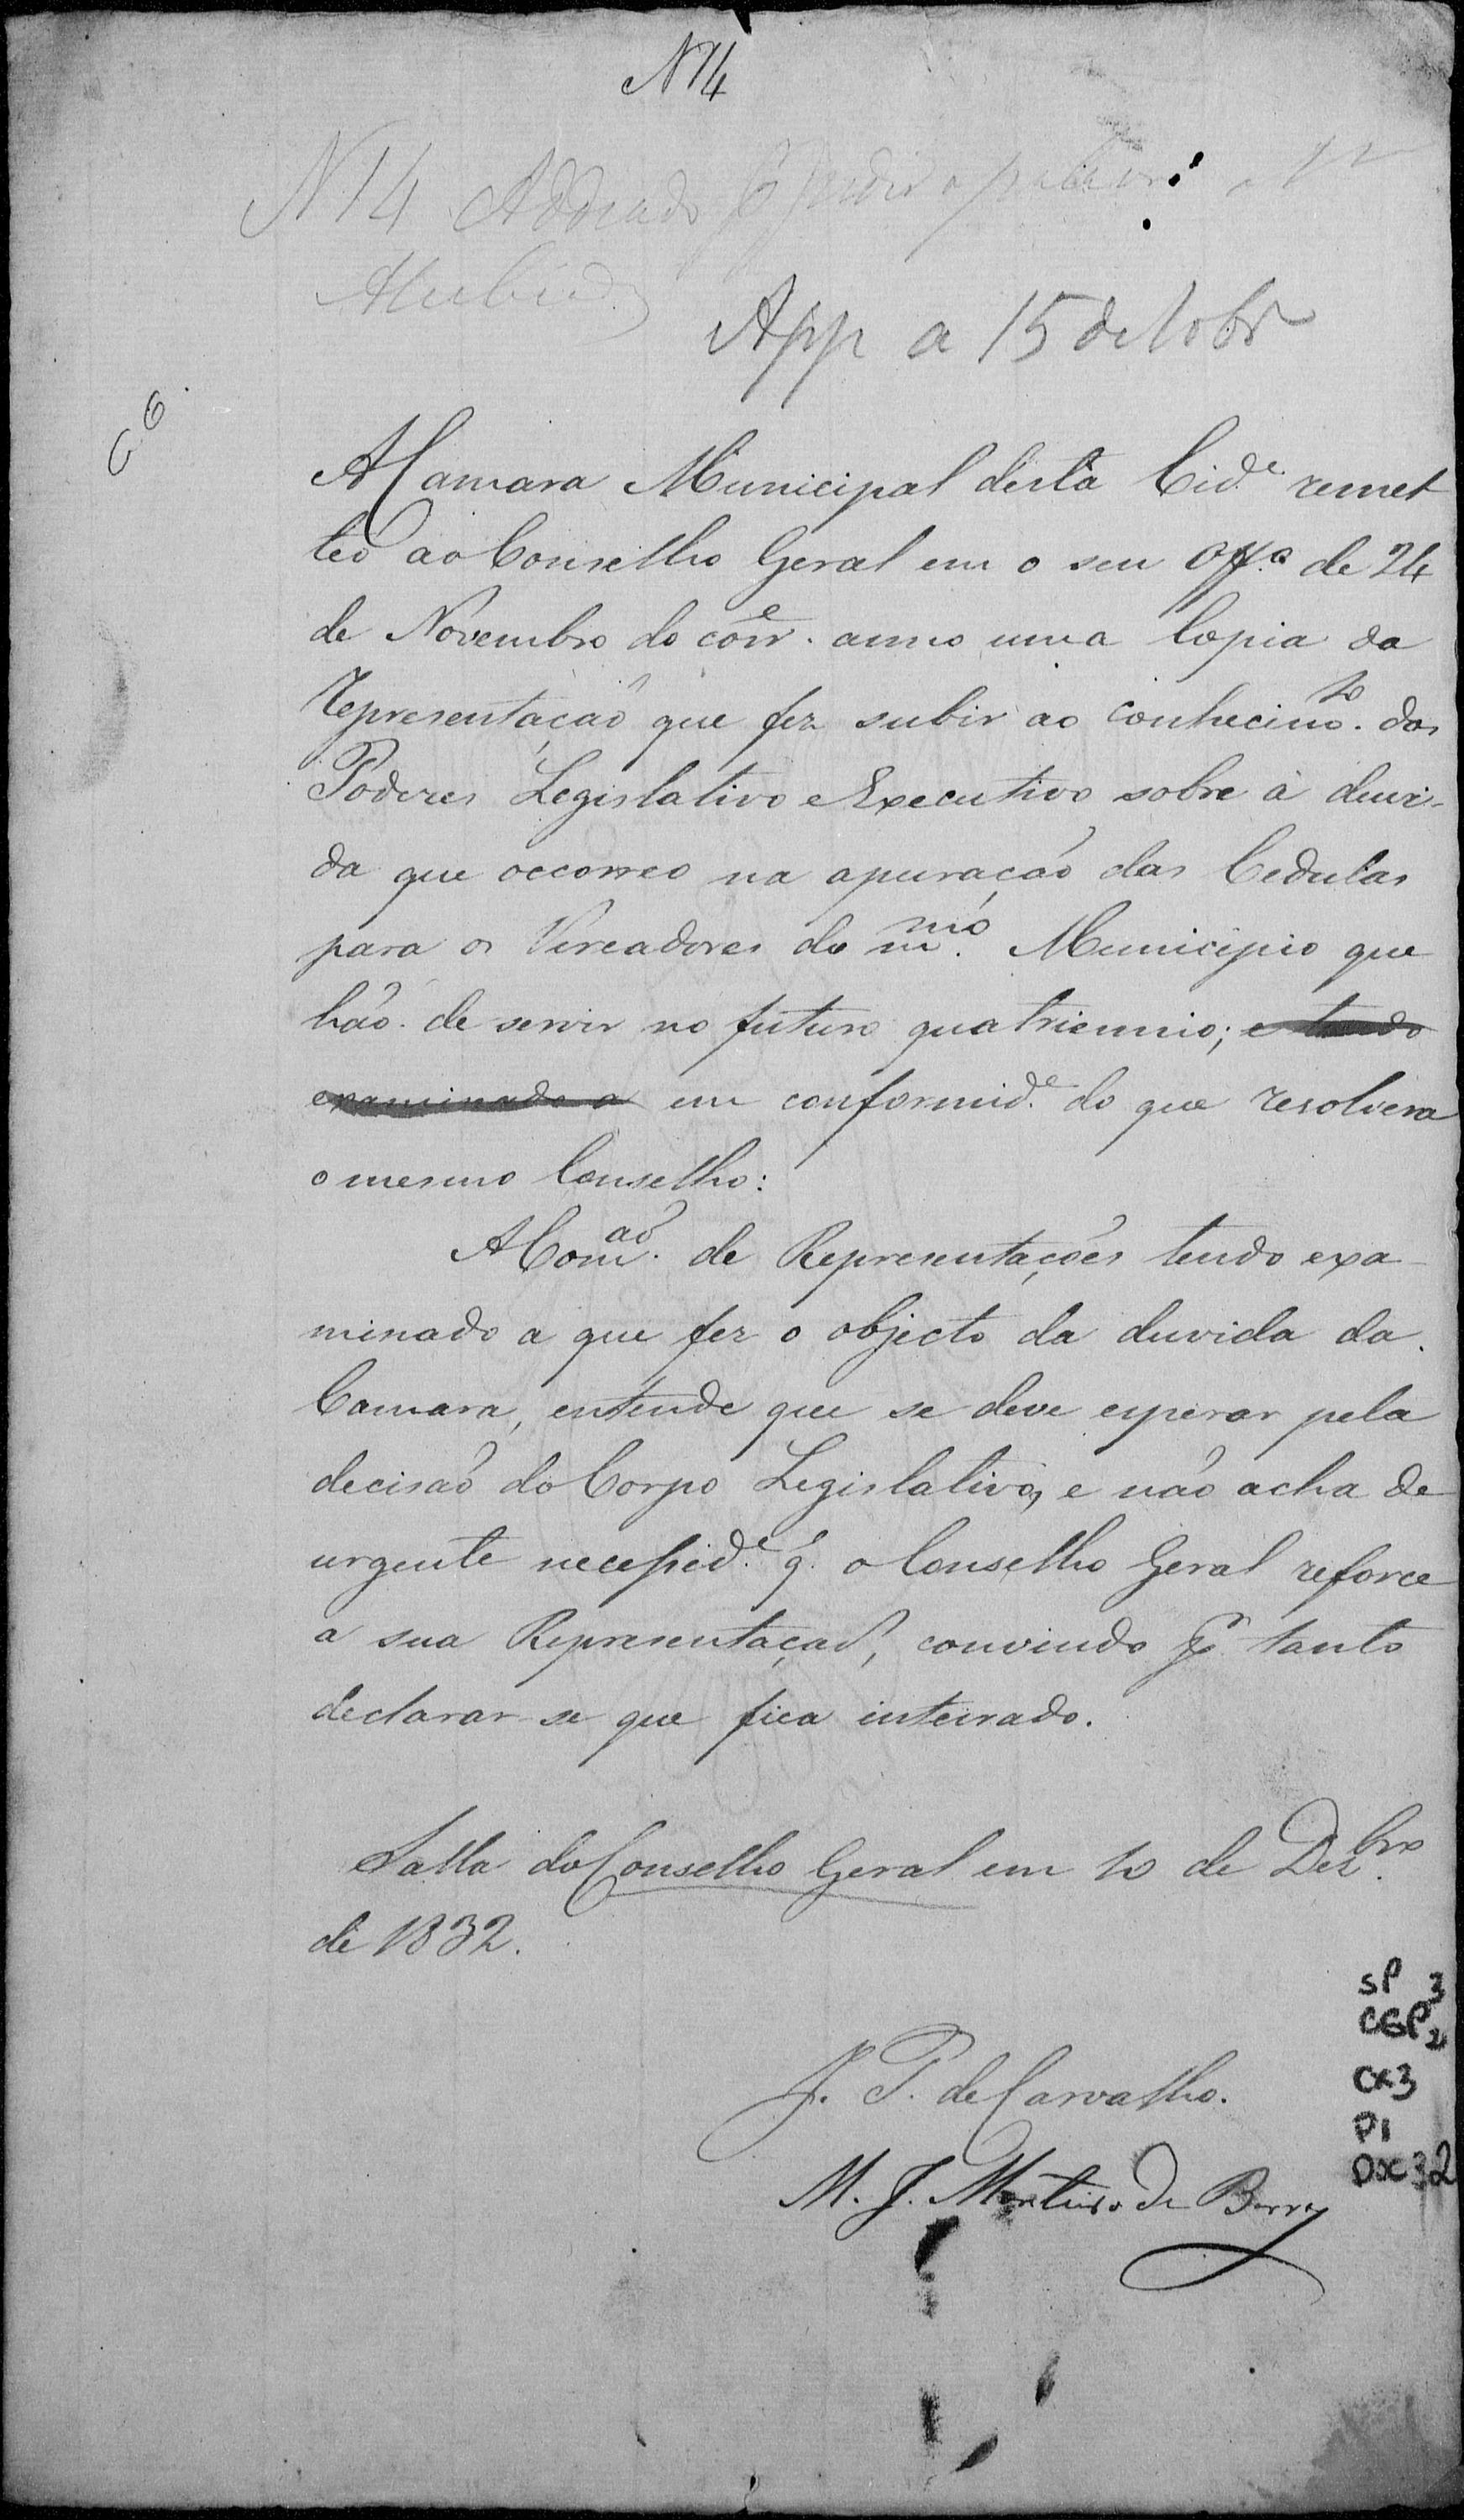 N 14
N 14 Addiado
App a 15 de 10br
A Camara Municipal desta Cid.e remet
teo ao Conselho Geral em o seu Off.o de 24
de Novembro do corr.e anno uma Copia da
representação que fez subir ao conhecim.to dos
Poderes Legislativo e Executivo sobre a duvi-
da que occorreo na apuração das Cedulas
para os Vereadores do m.mo Municipio que
hão de servir no futuro quatriennio; e tendo
examinado a em conformid.e do que resolvera
o mesmo Conselho:
A Com.ão de Representações tendo exa-
minado a que fez o objecto da duvida da
Camara, entende que se deve esperar pela
decisão do Corpo Legislativo, e não acha de
urgente necessid.e q. o Conselho Geral reforce
a sua Representação, convindo p.r tanto
declarar-se que fica inteirado.
Salla do Conselho Geral em 10 de Dez.bro
de 1832.
J. P. de Carvalho.
M. J. Monteiro de Barros
SP 3
CGP 2
CX3
P1
DX 32